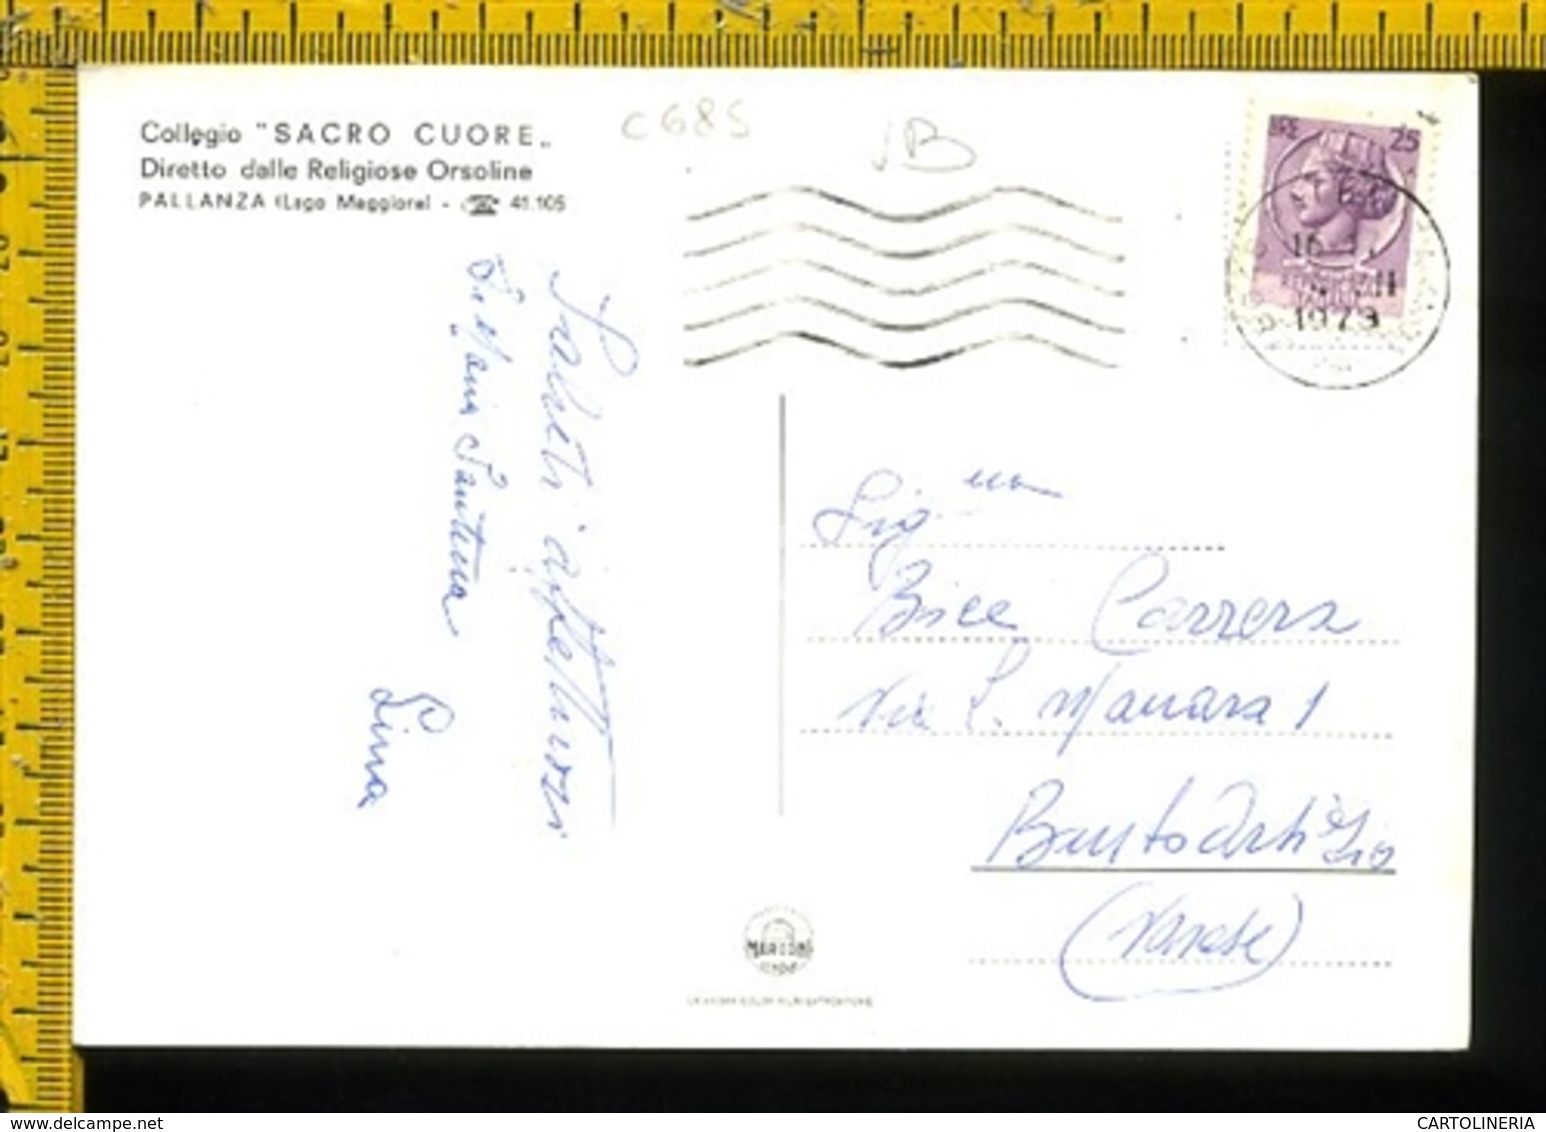 Collegio "SACRO CUORE„
Diretto dalle Religiose Orsoline
PALLANZA (Lago Maggiore) - ☎ 41.105
C685
VB
LIRE 25
16
1973
Saluti affettuosi
Sr Maria Santina
Lina
Sig.na
Bice Carrera
Via L. Manara 1
Busto Arsizio
(Varese)
delcampe.net
CARTOLINERIA